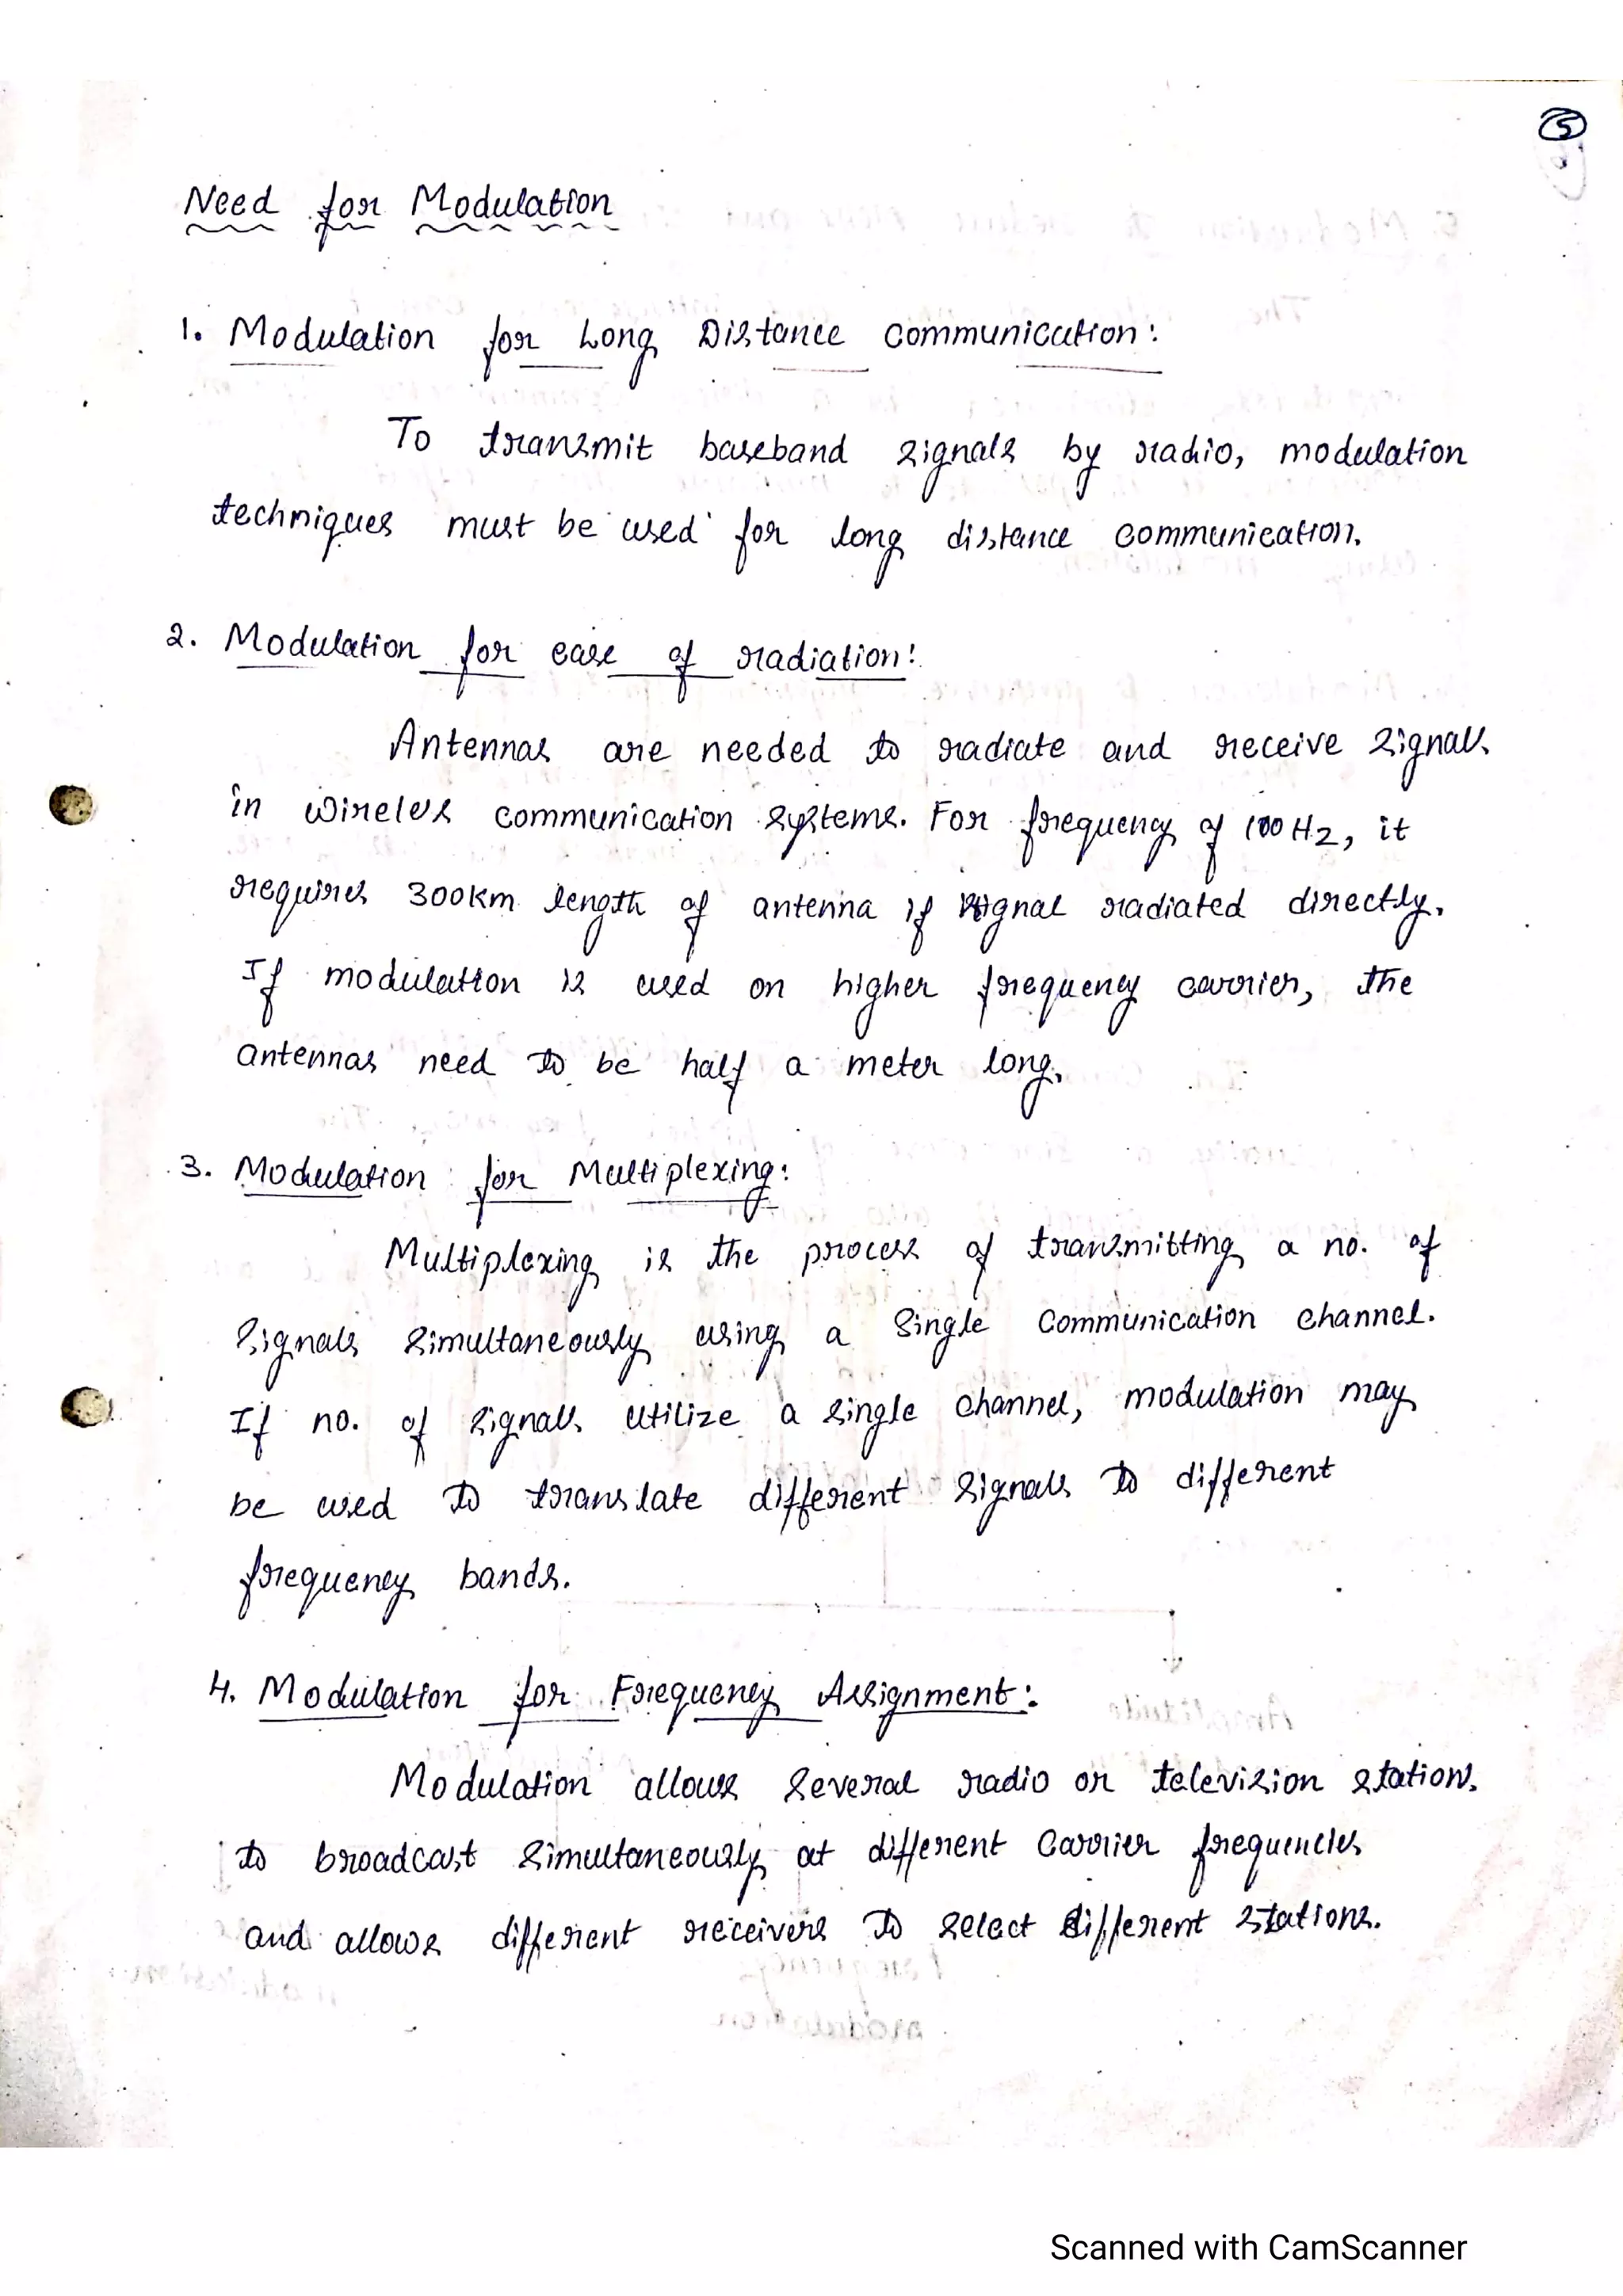 5
Need for Modulation
1. Modulation for Long Distance Communication:
To transmit baseband signals by radio, modulation
techniques must be used for long distance communication.
2. Modulation for ease of radiation:
Antennas are needed to radiate and receive signals
in wireless communication systems. For frequency of 100 Hz, it
requires 300km length of antenna if signal radiated directly.
If modulation is used on higher frequency carrier, the
antennas need to be half a meter long.
3. Modulation for Multiplexing:
Multiplexing is the process of transmitting a no. of
signals simultaneously using a single communication channel.
If no. of signals utilize a single channel, modulation may
be used to translate different signals to different
frequency bands.
4. Modulation for Frequency Assignment:
Modulation allows several radio or television stations
to broadcast simultaneously at different carrier frequencies
and allows different receivers to select different stations.
Scanned with CamScanner